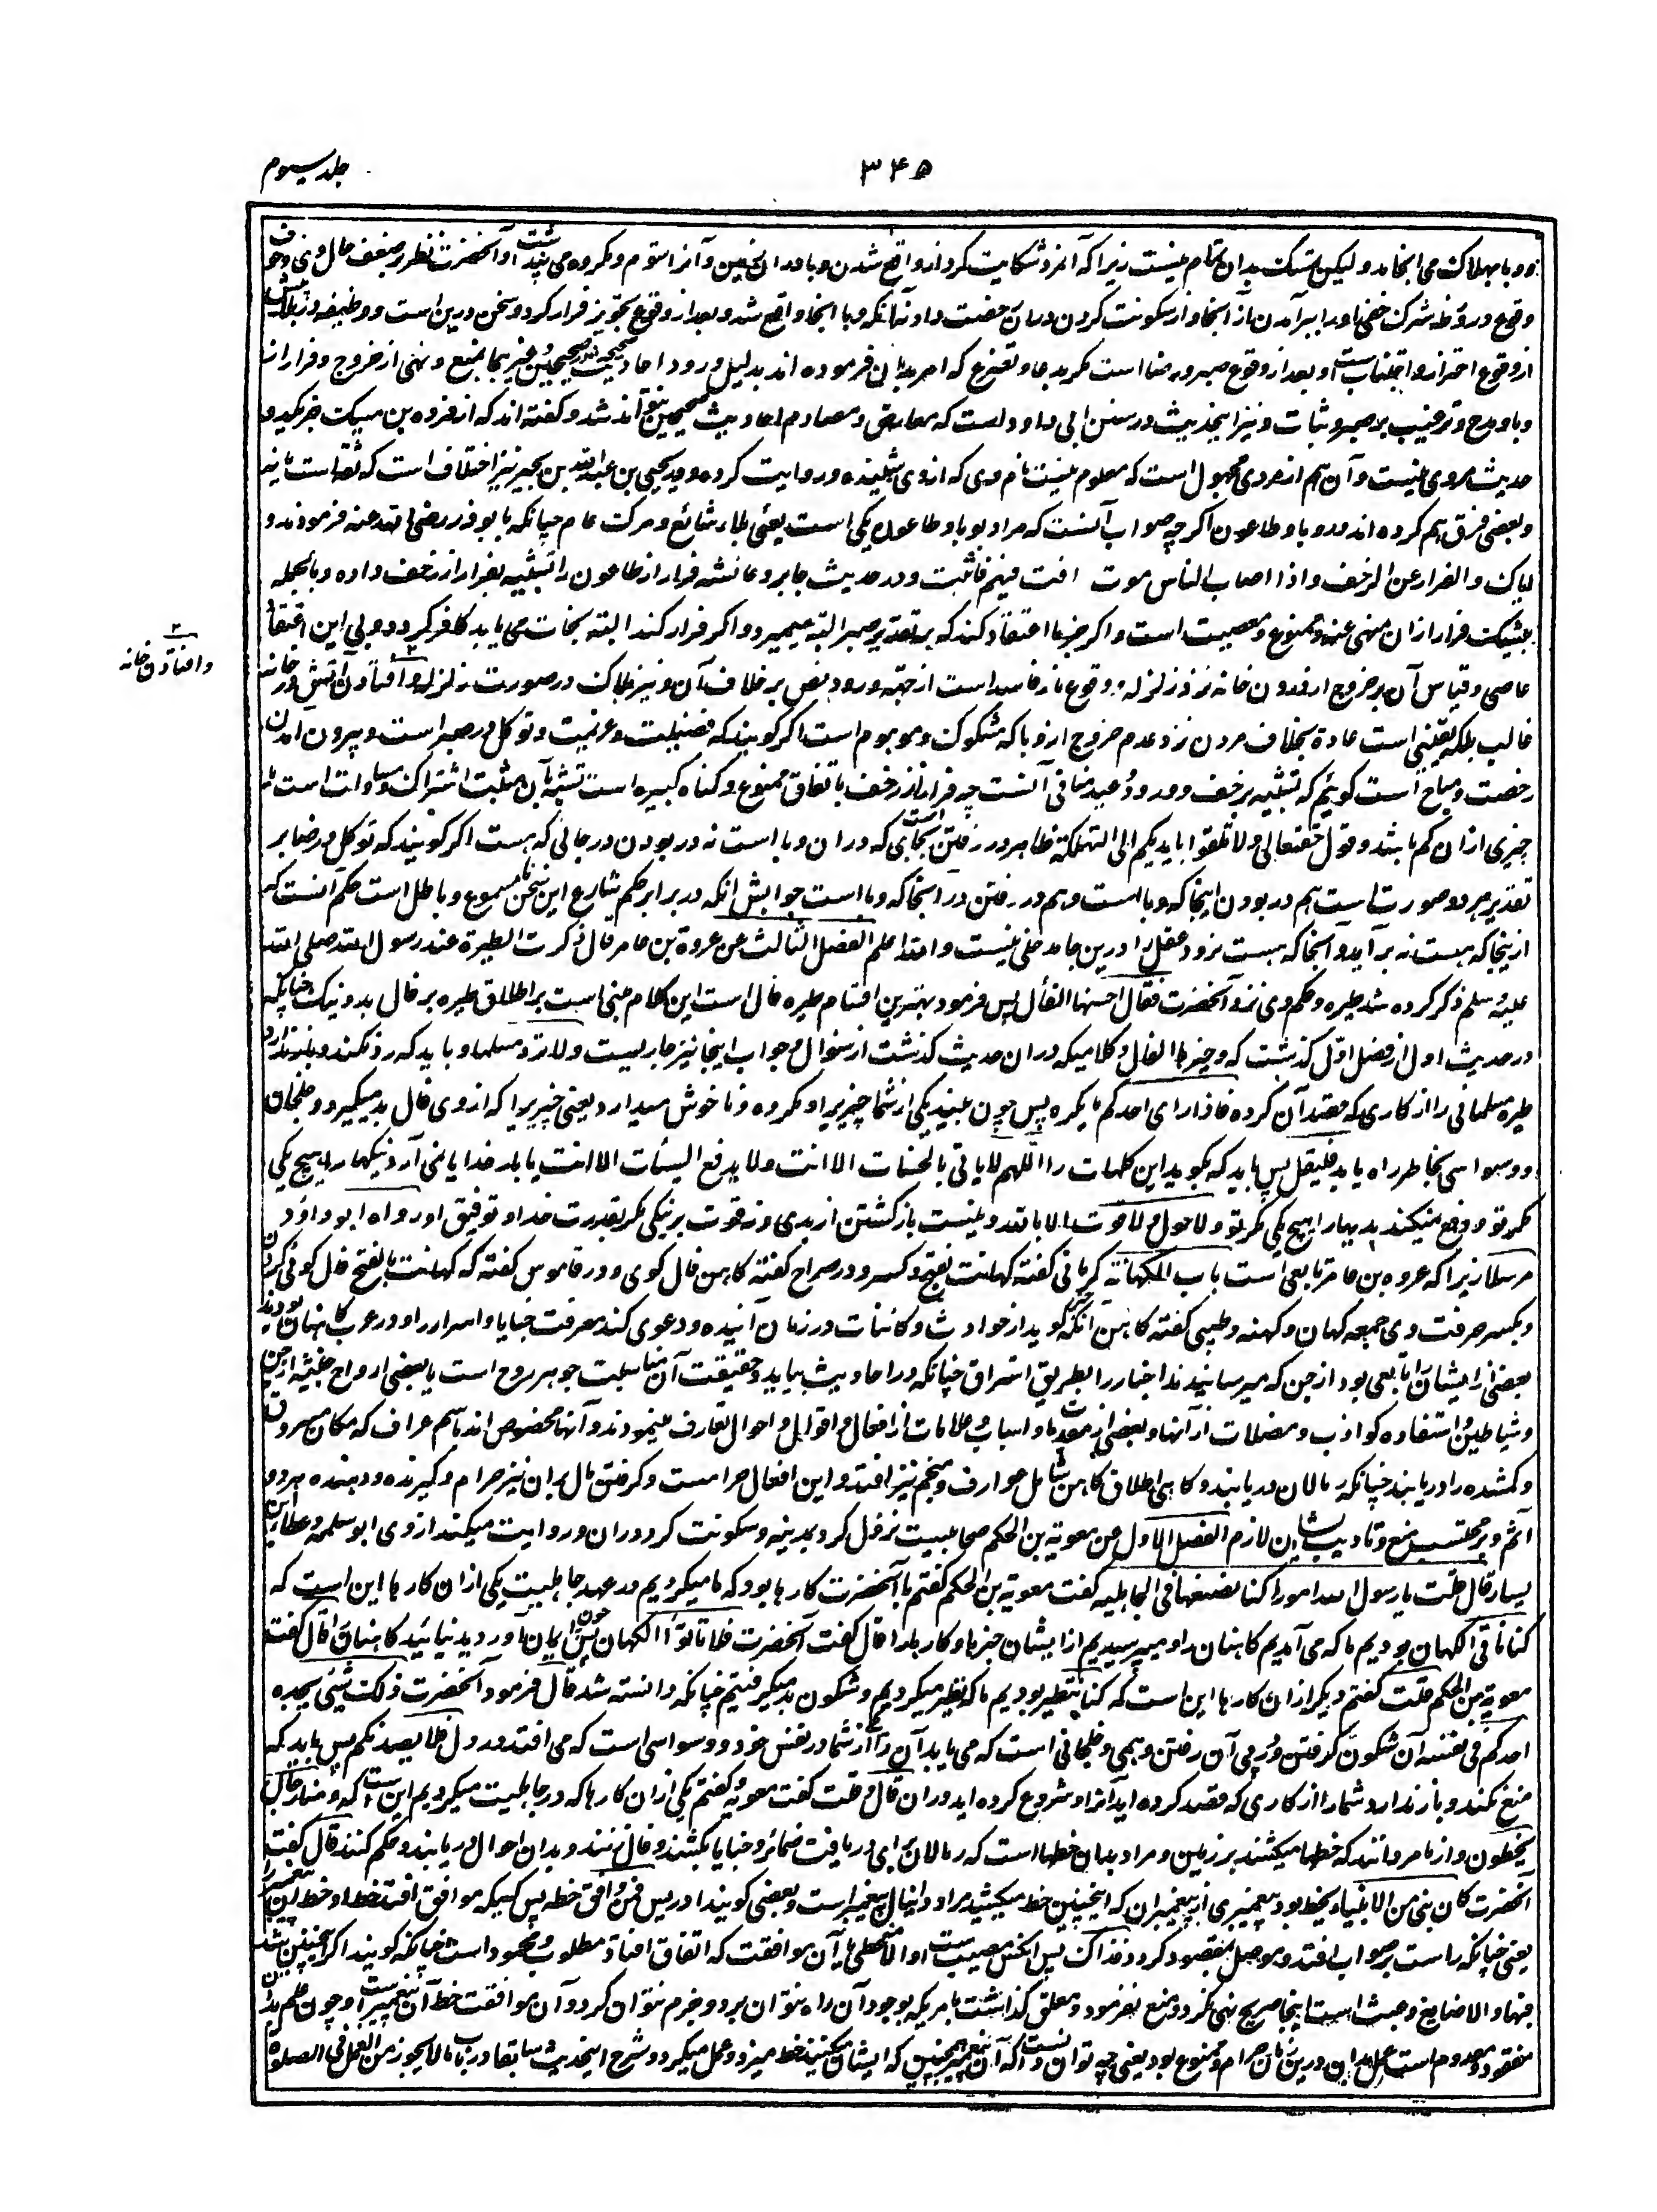 جلد سیوم
۳۴۵
ووبا بهلاک می انجامد ولیکن تمسک بدان تمام نیست زیرا که آنمرد شکایت کرد از واقع شدن وبا در ان زمین و آنرا شوم و مکروه می پنداشت و آنحضرت نظر بر ضعف حال وی و خوف
وقوع در ورطه شرک خفی او را ببر آمدن از آنجا و از سکونت کردن در آن رخصت داد نه آنکه وبا آنجا واقع شد و بعد از وقوع تجویز فرار کرد و سخن درین است و وظیفه در بلا پیش
از وقوع احتراز و اجتناب است و بعد از وقوع صبر و رضا است مگر بدعا و تضرع که امر بدان فرموده اند بدلیل ورود احادیث صحیحه در صحیحین و غیر هما بمنع و نهی از خروج و فرار از
وبا و مدح و ترغیب بر صبر و ثبات و نیز این حدیث در سنن ابی داود است که معارض و مصادم احادیث صحیحین نتواند شد و گفته اند که از فروه بن مسیک جز یکدو
حدیث مروی نیست و آن هم از مردی مجهول است که معلوم نیست نام وی که از وی شنیده و روایت کرده و در یحیی بن عبدالله بن بحیر نیز اختلاف است که ثقه است یا نه
و بعضی فرق هم کرده اند در وبا و طاعون اگرچه صواب آنست که مراد بوبا و طاعون یکی است یعنی بلاء شائع و مرگ عام چنانکه بابوذر رضی الله عنه فرمودند و
ایاک و الفرار عن الزحف و اذا اصاب الناس موت انت فیهم فاثبت و در حدیث جابر و عائشه فرار از طاعون را تشبیه بفرار از زحف داده و بالجمله
بیشک فرار از ان منهی عنه و ممنوع و معصیت است و اگر جزما اعتقاد کند که بر تقدیر صبر البته میمیرد و اگر فرار کند البته نجات می یابد کافر گردد و بی این اعتقاد
عاصی و قیاس آن بر خروج از درون خانه نزد زلزله و وقوع نار فاسد است از جهة ورود نص بر خلاف آن و نیز هلاک در صورت زلزله و افتادن آتش در خانه
غالب بلکه یقینی است عادة بخلاف مردن نزد عدم خروج از وبا که مشکوک و موهوم است اگر گویند که فضیلت و عزیمت و توکل در صبر است و بیرون آمدن
رخصت و مباح است گوئیم که تشبیه بزحف و ورود وعید منافی آنست چه فرار از زحف باتفاق ممنوع و گناه کبیره است تشبیه بآن مثبت اشتراک و مساوات است نه
چیزی از ان کم باشد و قول حقتعالی ولا تلقوا بایدیکم الی التهلکة ظاهر در رفتن است بجای که در ان وبا است نه در بودن در جائی که هست اگر گویند که توکل و رضا بر
تقدیر هر دو صورت است هم در بودن اینجا که وبا است و هم در رفتن در آنجا که وبا است جوابش آنکه در برابر حکم شارع این سخن نامسموع و باطل است حکم آنست که
از ینجا که هست نه برآید و آنجا که هست نرود عقل را درین جا مدخلی نیست و الله اعلم الفصل الثالث عن عروة بن عامر قال ذکرت الطیرة عند رسول الله صلی الله
علیه و سلم ذکر کرده شد طیره و حکم وی نزد آنحضرت فقال احسنها الفأل پس فرمود بهترین اقسام طیره فال است این کلام مبنی است بر اطلاق طیره بر فال بد و نیک چنانکه
در حدیث اول از فصل اول گذشت که و خیرها الفال و کلامیکه در ان حدیث گذشت از سوال و جواب اینجا نیز جاریست ولا ترد مسلما و باید که رد نکند و باز ندارد
طیره مسلمانی را از کاری که قصد آن کرده فاذا رای احدکم ما یکره پس چون ببیند یکی از شما چیزیرا و مکروه و ناخوش میدارد یعنی چیزیرا که از وی فال بد میگیرد و خلجان
و وسواسی بخاطر راه یابد فلیقل پس باید که بگوید این کلمات را اللهم لا یاتی بالحسنات الا انت ولا یدفع السیئات الا انت یا بار خدایا نمی آرد نیکیها را هیچ یکی
مگر تو و دفع نمیکند بدیها را هیچ یکی مگر تو ولا حول ولا قوت الا بالله و نیست باز گشتن از بدی و نه قوت بر نیکی مگر بقدرت خدا و توفیق او رواه ابو داؤد
مرسلا زیرا که عروه بن عامر تابعی است باب الکهانة کرمانی گفته کهانت بفتح و کسر و در صراح گفته کاهن فال گوی و در قاموس گفته که کهانت بالفتح فال گوئی کردن
و بکسر حرفت وی جمعه کهان و کهنه و طیبی گفته کاهن آنکه خبر گوید از حوادث و کائنات در زمان آینده و دعوی کند معرفت خبایا و اسرار را و در عرب کاهنان بودند
بعضی از ایشان را تابعی بود از جن که میرسانیدند اخبار را بطریق استراق چنانکه در احادیث بیاید و حقیقت آن مناسبت جوهر روح است با بعضی ارواح خبیثه از جن
و شیاطین و استفاده کواذب و مضلات از آنها و بعضی از مقدمات و اسباب و علامات از افعال و اقوال و احوال تعارف مینمودند و آنها مخصوص اند باسم عراف که مکان مسروق
و گمشده را دریابند چنانکه رمالان دریابند و گاهی اطلاق کاهن شامل عراف و منجم نیز افتد و این افعال حرامست و گرفتن مال بران نیز حرام و گیرنده و دهنده هر دو
آثم و بر محتسب منع و تادیب ایشان لازم الفصل الاول عن معویة بن الحکم صحابیست نزول کرد بمدینه و سکونت کرد در ان و روایت میکند از وی ابو سلمه و عطا بن
یسار قال قلت یا رسول الله امورا کنا نصنعها فی الجاهلیه گفت معویة بن الحکم گفتم بآنحضرت کارها بود که ما میکردیم در عهد جاهلیت یکی از ان کارها این است که
کنا ناتی الکهان بودیم ما که می آمدیم کاهنان را و میپرسیدیم از ایشان خبرها و کارها را قال گفت آنحضرت فلا تاتوا الکهان پس چون ایمان آوردید نیائید کاهنان را قال گفت
معویة بن الحکم قلت گفتم دیگر از ان کارها این است که کنا نتطیر بودیم ما که تطیر میکردیم و شگون بد میگرفتیم چنانکه دانسته شد قال فرمود آنحضرت ذلک شیئ یجده
احدکم فی نفسه آن شگون گرفتن و در پی آن رفتن وهمی و خلجانی است که می یابد آن را یکی از شما در نفس خود و وسواسی است که می افتد در دل فلا یصدنکم پس باید که
منع نکند و باز ندارد شما را از کاری که قصد کرده اید آنرا و شروع کرده اید در ان قال قلت گفت معویه و گفتم یکی از ان کارها که در جاهلیت میکردیم این است که و منا رجال
یخطون و از ما مردانند که خطها میکشند بر زمین و مراد بدان خطها است که رمالان برای دریافت ضمائر و خبایا بکشند و فال زنند و بدان احوال دریابند و حکم کنند قال گفت
آنحضرت کان نبی من الانبیاء یخط بود پیغمبری از پیغمبران که اینچنین خط میکشید مراد دانیال پیغمبر است و بعضی گویند ادریس فمن وافق خطه پس کسیکه موافق افتد خط او خط آن پیغمبر را
یعنی چنانکه راست بر صواب افتد و موصل بمقصود گردد فذاک پس آنکس مصیب است والا مخطی یا آن موافقت که اتفاق افتاد مطلوب و محمود است چنانکه گویند اگر اینچنین شد
فبها والا ضایع و عبث است اینجا صریح نهی نکرد و منع نفرمود و معلق گذاشت بامریکه بوجود آن راه نتوان برد و جزم نتوان کرد و آن موافقت خط آن پیغمبر است و چون علم بدان
مفقود و معدوم است عمل بدان درین زمان حرام و ممنوع بود یعنی چه توان دانست که آن پیغمبر همچنین که ایشان میکنند خط میزد و عمل میکرد و شرح این حدیث سابقا در باب مالا یجوز من العمل فی الصلوة
۲
وافتادن خانه